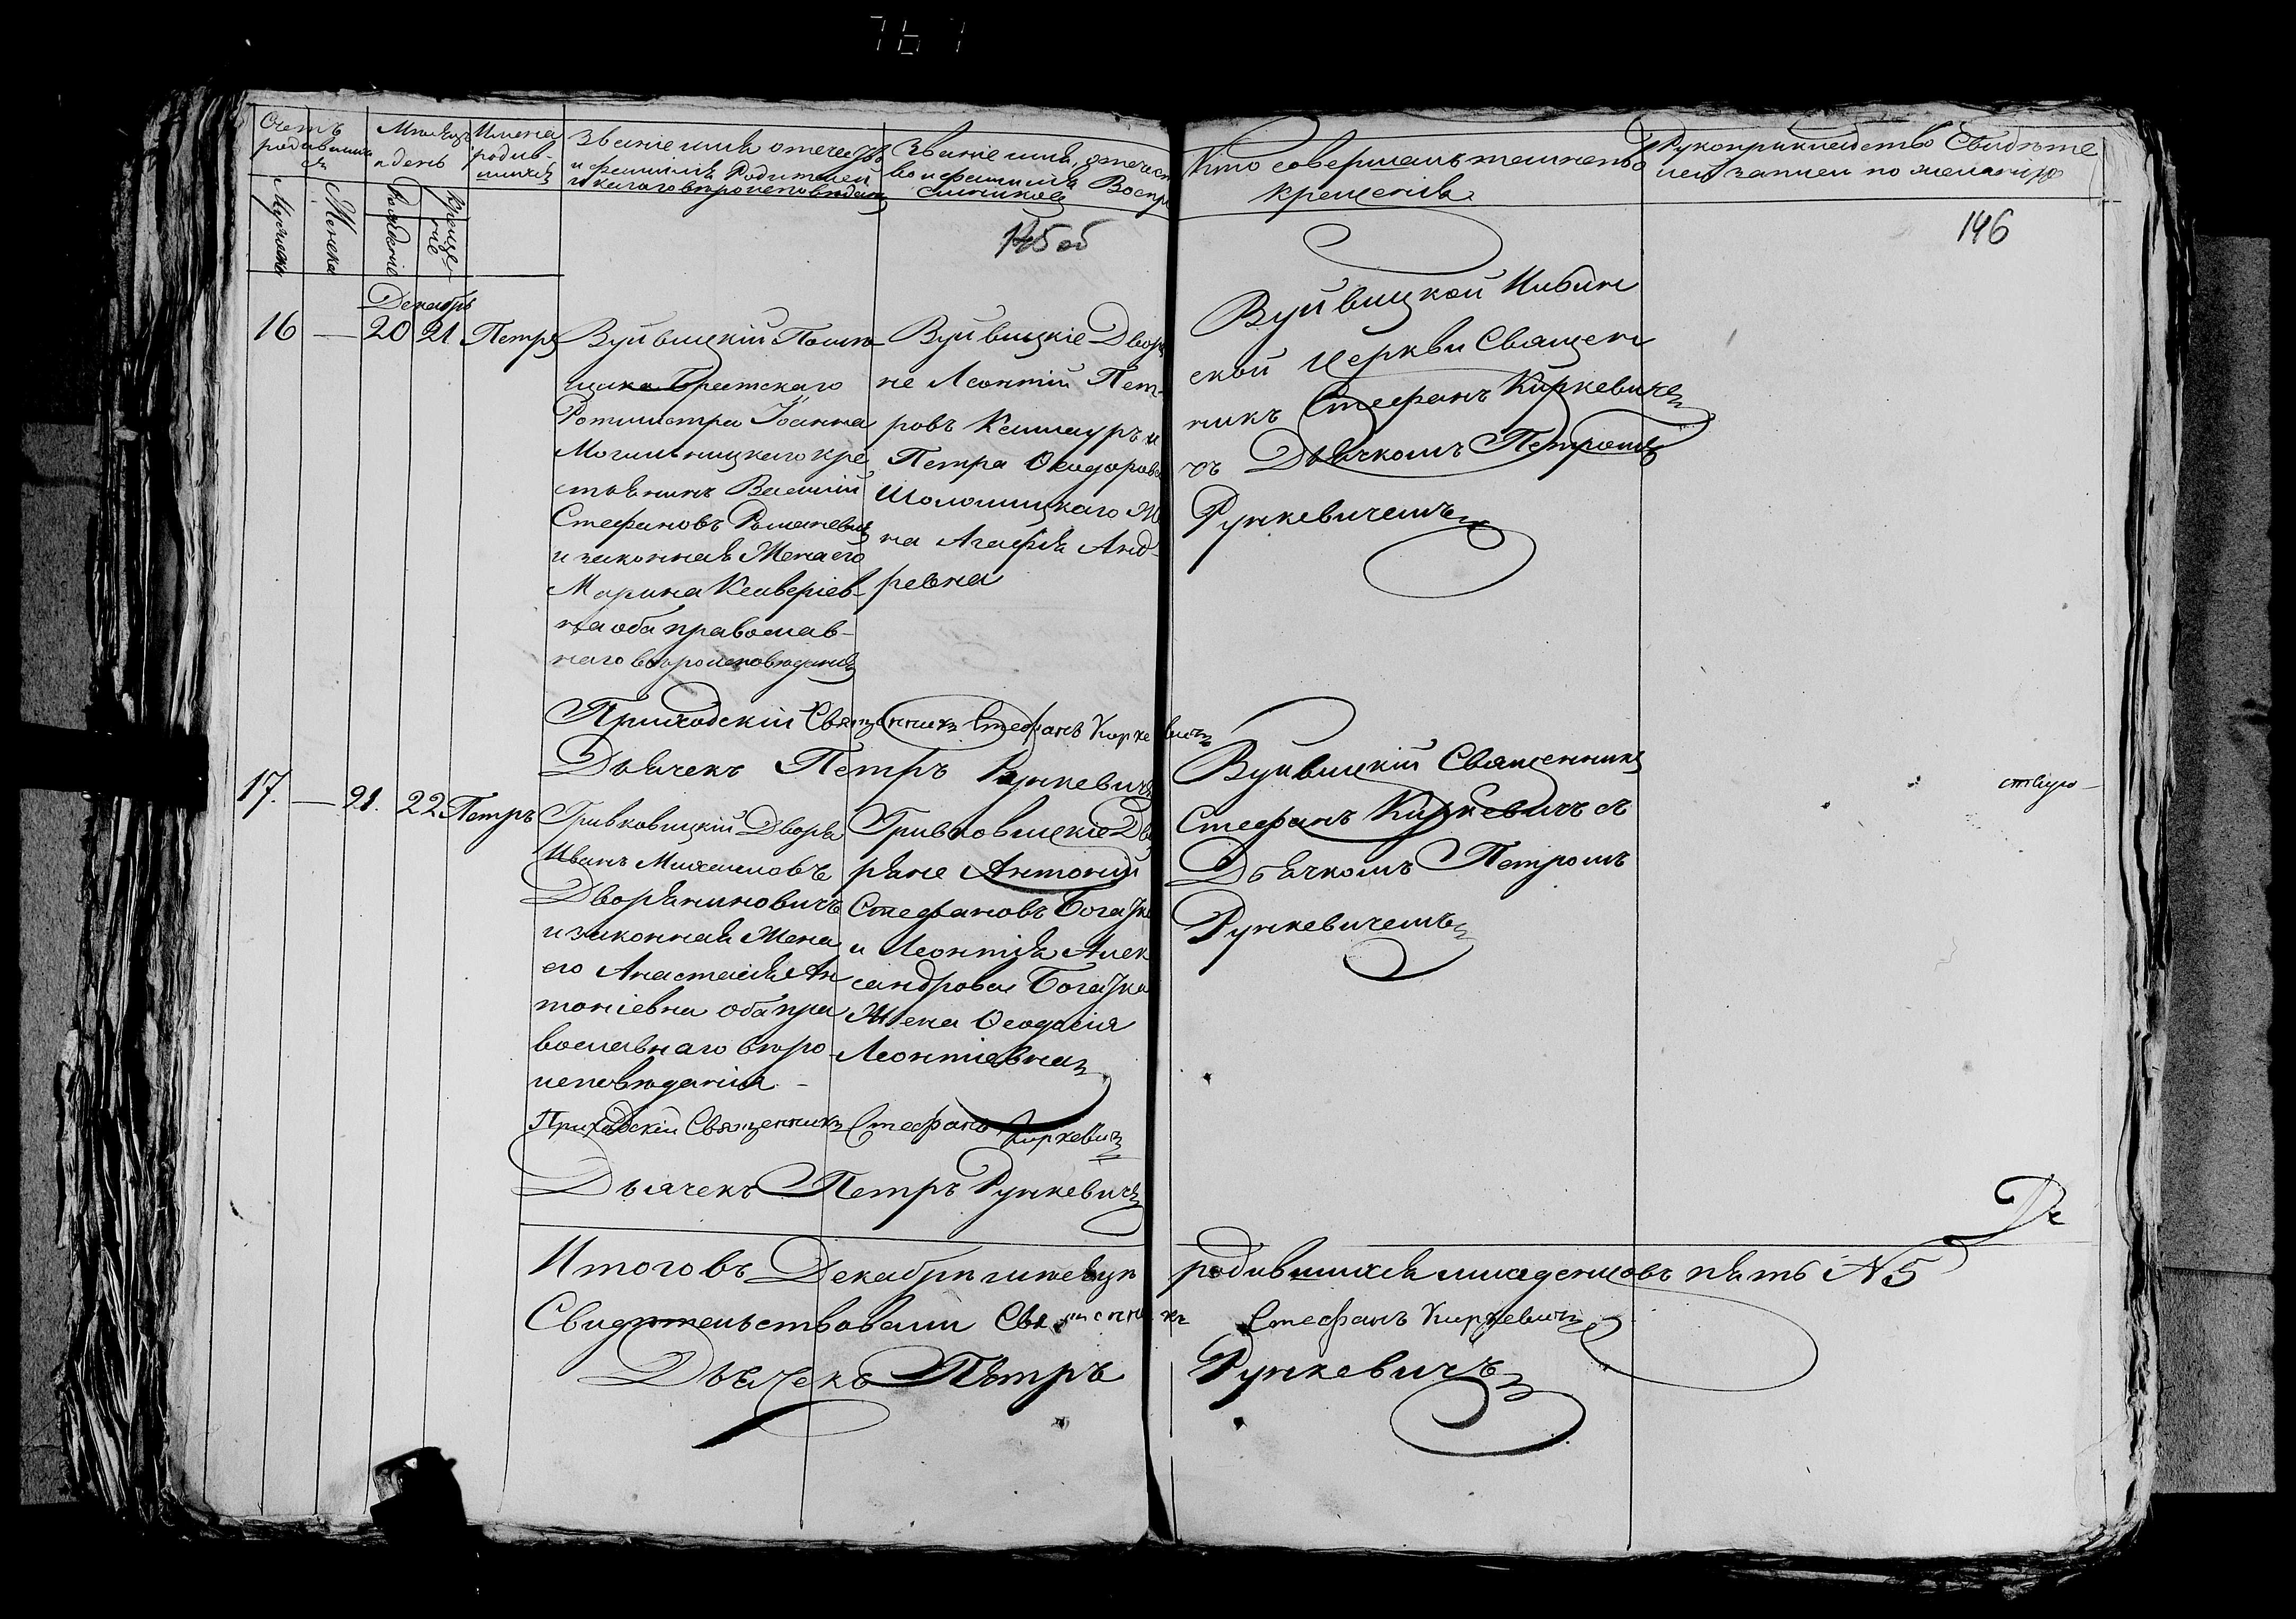 Счетъ родившихся
Мужеска
Женска
Мѣсяцъ и день
Рожденіе
Крещеніе
Имена родившихся
Званіе имя отечество
и фамилія Родителей
и какаго вѣроисповѣданія
Званіе имя, отечест
во и фамилія Воспр
емниковъ
Кто совершалъ таинство
крещенія
Рукоприкладство Свидѣте
лей записи по желанію
145 об
146
Декабрь
16 — 20 21 Петръ
Вуйвицкій Помѣ
щика Брестскаго
Ротмистра Іоанна
Могильницкаго кре
стьянинъ Василій
Стефановъ Романевичъ
и законная Жена его
Марина Ксаверіев-
на оба православ-
наго вѣроисповѣданія
Вуйвицкіе Дворя
не Леонтій Пет-
ровъ и
Петра Ѳеодорова
Шоломицкаго Же
на Агафія Анд-
реевна
Вуйвицкой
ской Церкви Священ
никъ Стефанъ Киркевичъ
съ Дьячкомъ Петромъ
Рункевичемъ
Приходскій Священникъ Стефанъ Киркевичъ
Дьячекъ Петръ Рункевичъ
17. — 21. 22 Петръ
Гривковицкій Дворян
Иванъ Михаиловъ
Дворяниновичъ
и законная Жена
его Анастасія Ан
тоніевна оба пра
вославнаго вѣро
исповѣданія. -
Гривковицкіе Дво
ряне Антоній
Стефановъ Богацко
и Леонтія Алек
сандрова Богацка
Жена Ѳеодосія
Леонтіевна
Вуйвицкій Священникъ
Стефанъ Киркевичъ съ
Дьячкомъ Петромъ
Рункевичемъ
ствую-
Приходскій Священникъ Стефанъ Киркевичъ
Дьячекъ Петръ Рункевичъ
Де
Итого въ Декабрѣ мѣсяцѣ родившихся младенцовъ пять N 5
Свидѣтельствовали Священникъ Стефанъ Киркевичъ
Дьячекъ Петръ Рункевичъ